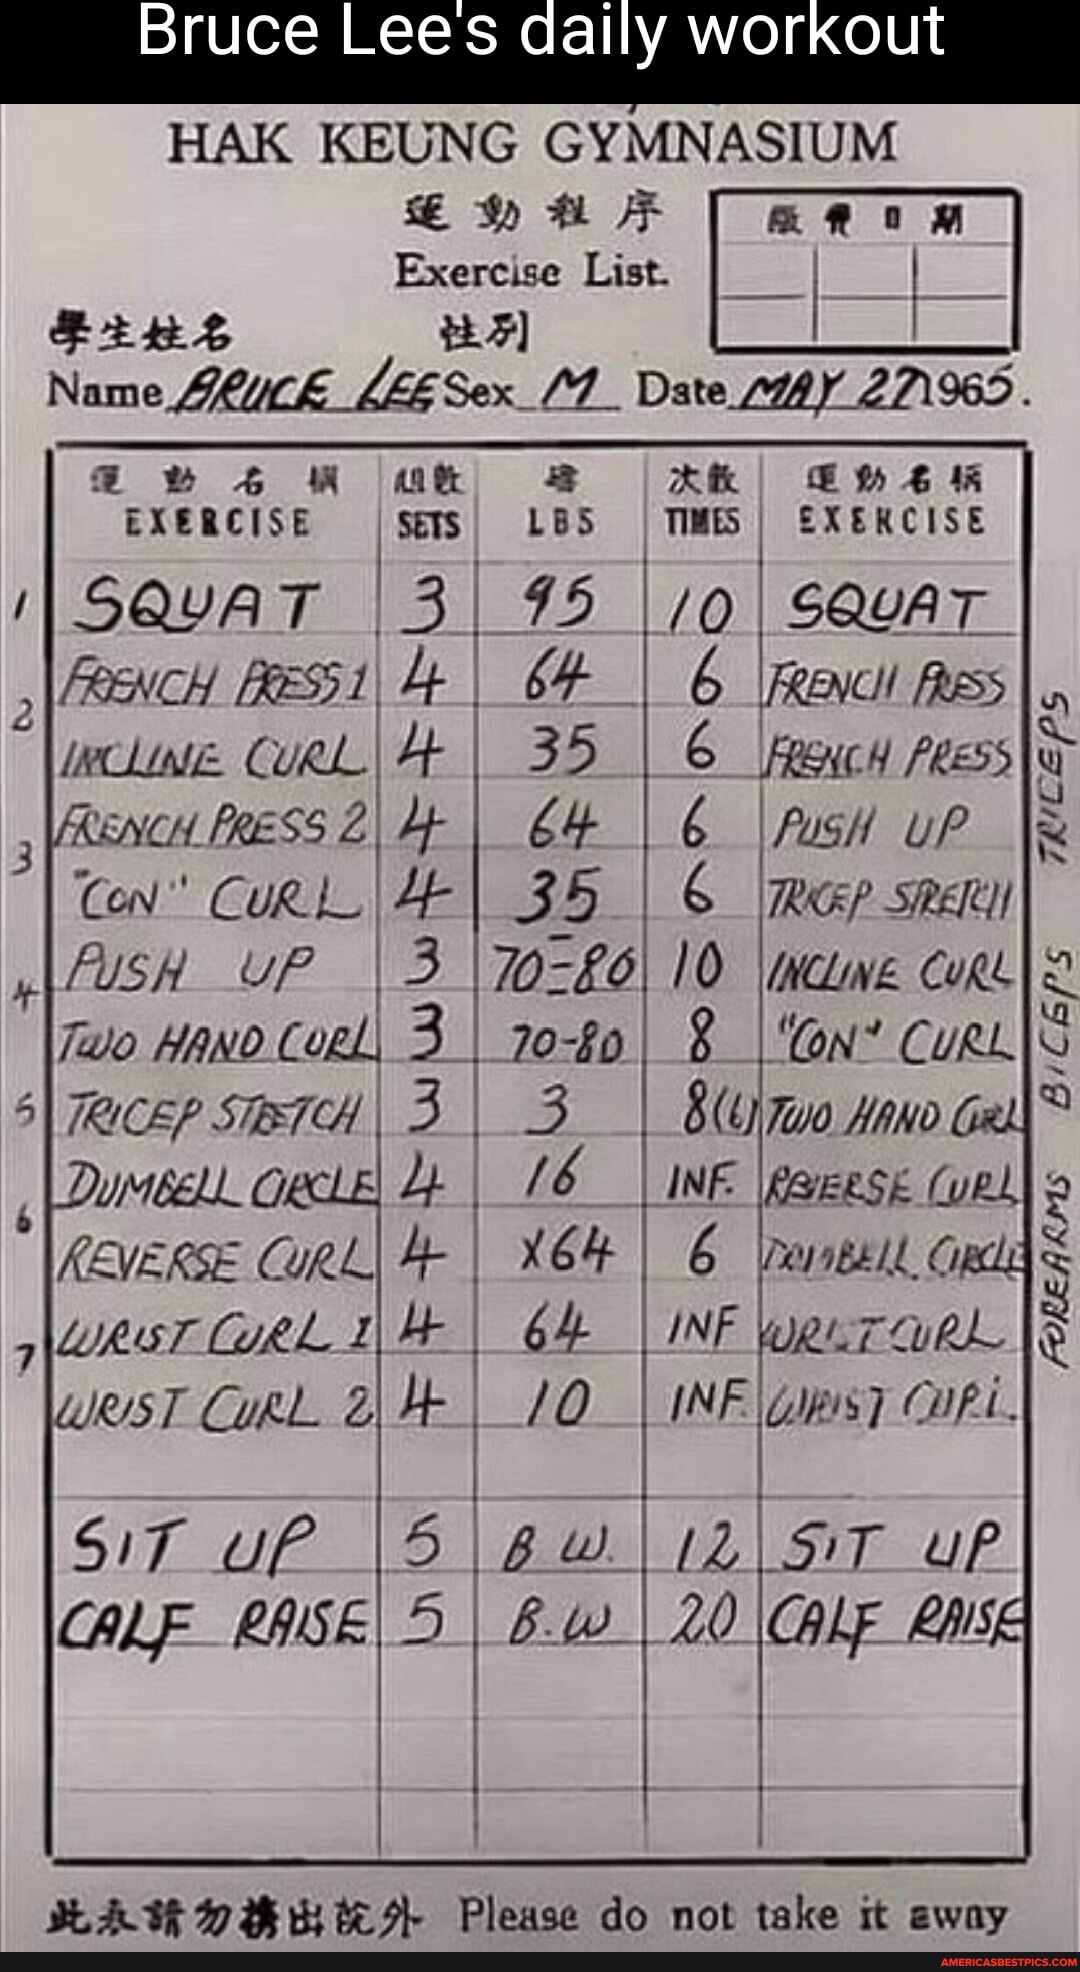 Bruce Lee's daily workout
HAK KEUNG GYMNASIUM
運動程序
Exercise List.
繳費日期
學生姓名 性別
Name BRUCE LEE Sex M Date MAY 27 1965.
運動名稱 組數 磅 次數 運動名稱
EXERCISE SETS LBS TIMES EXERCISE
1 SQUAT 3 95 10 SQUAT
FRENCH PRESS 1 4 64 6 FRENCH PRESS
2
INCLINE CURL 4 35 6 FRENCH PRESS
FRENCH PRESS 2 4 64 6 PUSH UP
3
"CON" CURL 4 35 6 TRICEP STRETCH
TRICEPS
PUSH UP 3 70-80 10 INCLINE CURL
4
TWO HAND CURL 3 70-80 8 "CON" CURL
BICEPS
5 TRICEP STRETCH 3 3 8(6) TWO HAND CURL
DUMBELL CIRCLE 4 16 INF. REVERSE CURL
6
REVERSE CURL 4 X64 6 DUMBELL CIRCLE
FOREARMS
WRIST CURL 1 4 64 INF WRIST CURL
7
WRIST CURL 2 4 10 INF. WRIST CURL
SIT UP 5 B.W. 12 SIT UP
CALF RAISE 5 B.W 20 CALF RAISE
此表請勿携出院外 Please do not take it away
AMERICASBESTPICS.COM